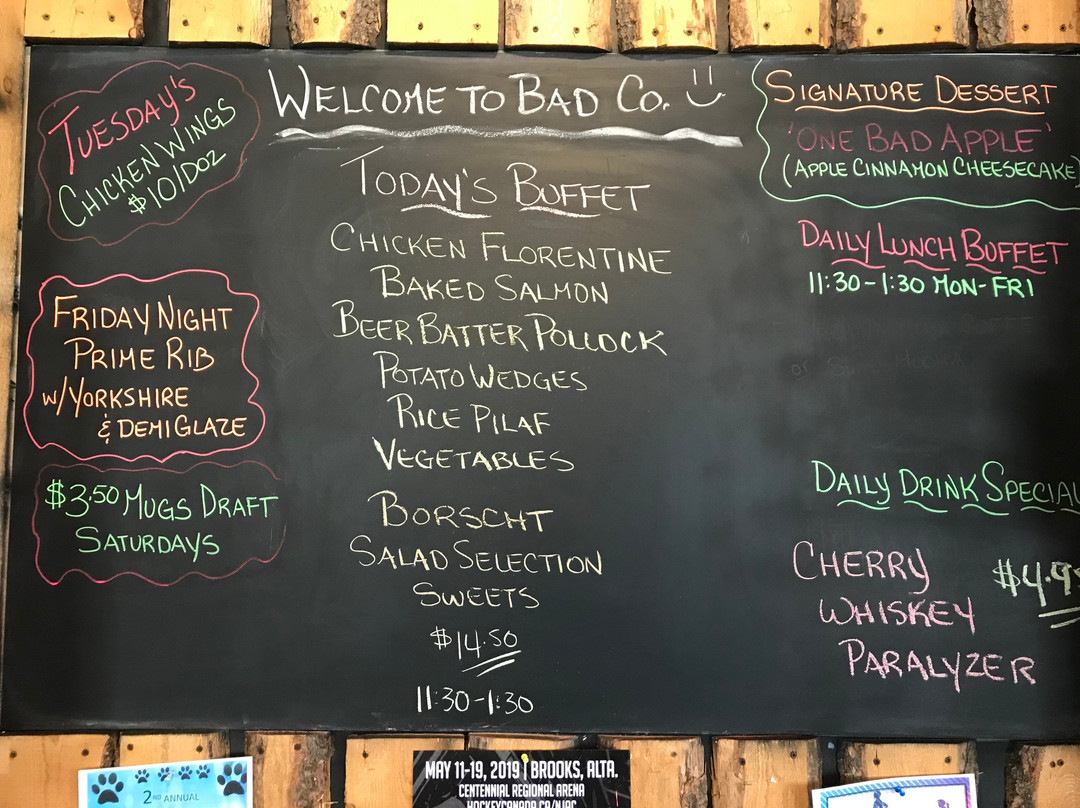 TUESDAY'S
CHICKEN WINGS
$10/DOZ
FRIDAY NIGHT
PRIME RIB
W/YORKSHIRE
& DEMI GLAZE
$3.50 MUGS DRAFT
SATURDAYS
WELCOME TO BAD CO.
TODAY'S BUFFET
CHICKEN FLORENTINE
BAKED SALMON
BEER BATTER POLLOCK
POTATO WEDGES
RICE PILAF
VEGETABLES
BORSCHT
SALAD SELECTION
SWEETS
$14.50
11:30-1:30
SIGNATURE DESSERT
'ONE BAD APPLE'
(APPLE CINNAMON CHEESECAKE)
DAILY LUNCH BUFFET
11:30-1:30 MON-FRI
DAILY DRINK SPECIAL
CHERRY
WHISKEY
PARALYZER
$4.9
2ND ANNUAL
MAY 11-19, 2019 | BROOKS, ALTA.
CENTENNIAL REGIONAL ARENA
HOCKEYCANADA.CA/NJAC